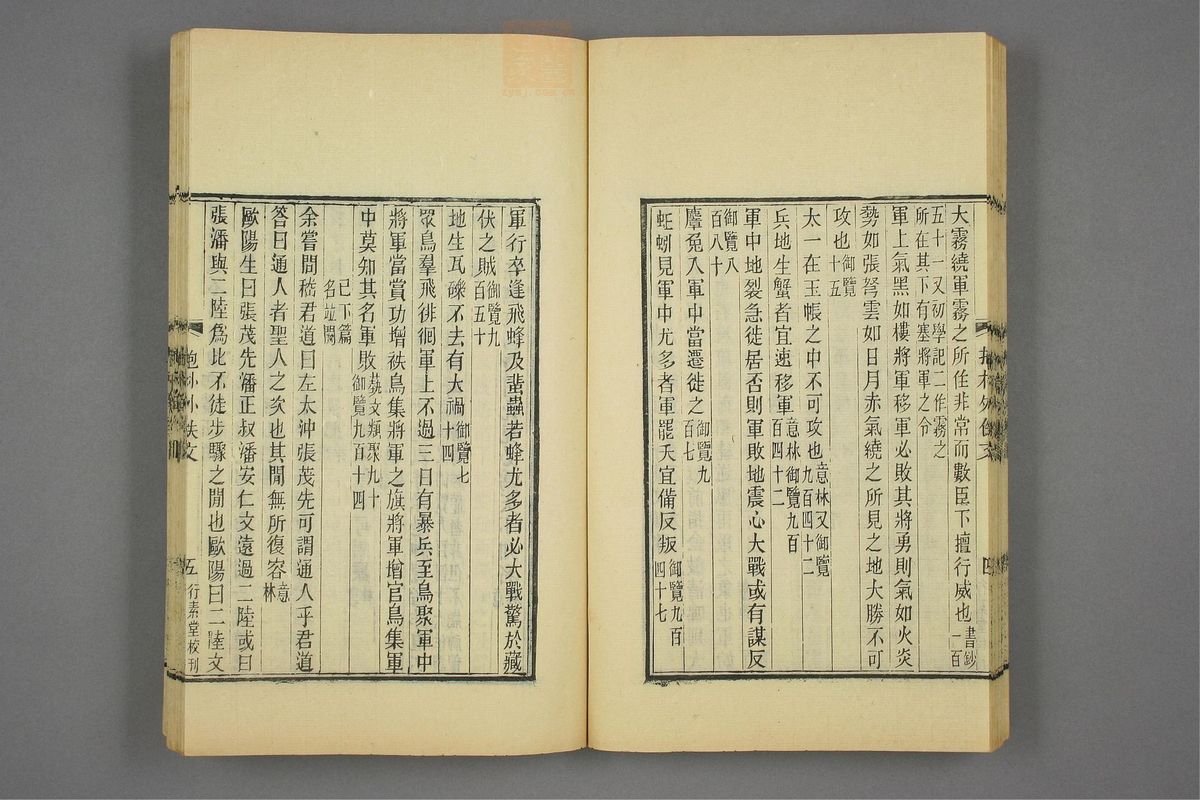 大霧繞軍霧之所在非常而數臣下擅行威也書鈔一百
五十一又初學記二作霧之所在其下有塞將軍之令
軍上氣黑如樓將軍移軍必敗其將勇則氣如火炎
勢如張弩雲如日月赤氣繞之所見之地大勝不可
攻也御覽十五
太一在玉帳之中不可攻也意林又御覽九百四十二
兵地生蟹者宜速移軍意林御覽九百四十二
軍中地裂急徙居否則軍敗地震心大戰或有謀反
御覽八百八十
麞兔入軍中當遷徙之御覽九百七
蚯蚓見軍中尤多者軍罷天宜備反叛御覽九百四十七
軍行卒逢飛蜂及蜚蟲若蜂尤多者必大戰驚於藏
伏之賊御覽九百五十
地生瓦礫不去有大禍御覽七十四
眾鳥羣飛徘徊軍上不過三日有暴兵至鳥聚軍中
將軍當賞功增袟鳥集將軍之旗將軍增官鳥集軍
中莫知其名軍敗蓺文類聚九十御覽九百十四
已下篇名竝闕
余嘗問嵇君道曰左太沖張茂先可謂通人乎君道
答曰通人者聖人之次也其閒無所復容意林
歐陽生曰張茂先潘正叔潘安仁文遠過二陸或曰
張潘與二陸爲比不徒步驟之閒也歐陽曰二陸文
五
行素堂校刊